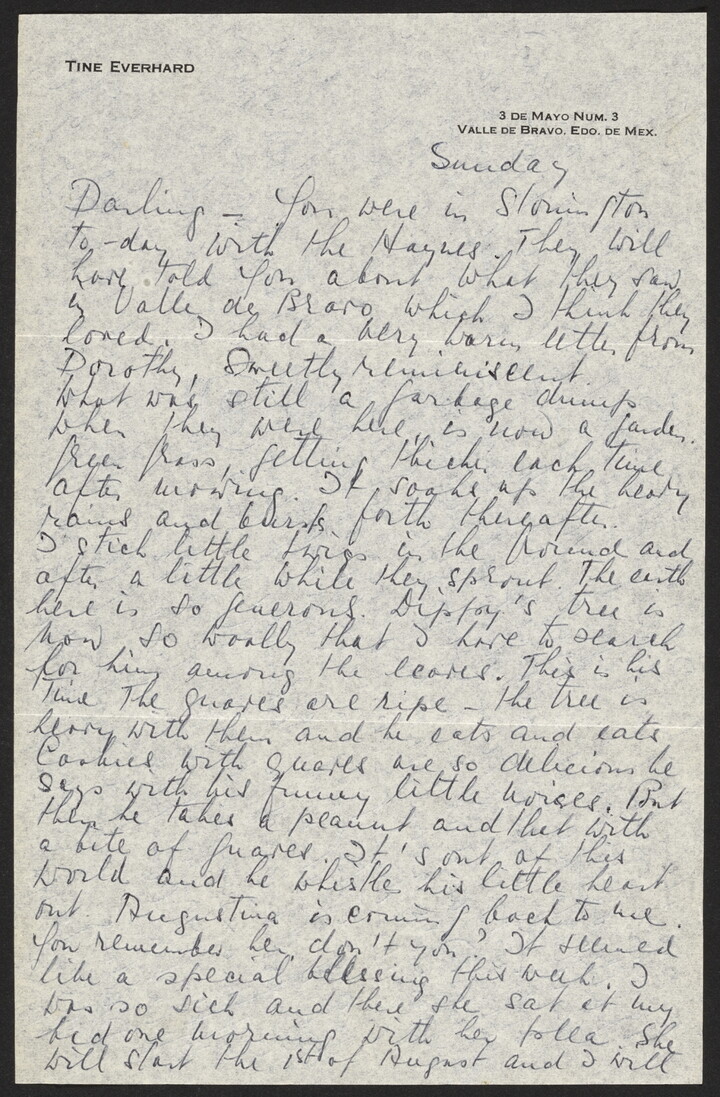 TINE EVERHARD
3 DE MAYO NUM. 3
VALLE DE BRAVO. EDO. DE MEX.
Sunday
Darling – You were in Stonington
to-day with the Haynes. They will
have told you about what they saw
in Valle de Bravo which I think they
loved. I had a very warm letter from
Dorothy, Sweetly reminiscent.
What was still a garbage dump
when they were here, is now a garden.
Green grass, getting thicker each time
after mowing. It soaks up the heavy
rains and bursts forth thereafter.
I stick little twigs in the ground and
after a little while they sprout. The earth
here is so generous. Dippy's tree is
now so woolly that I have to search
for him among the leaves. This is his
time The guaves are ripe – the tree is
heavy with them and he eats and eats
Cookies with guaves are so delicious he
says with his funny little noises. But
then he takes a peanut and that with
a bite of guaves. It's out of this
world and he whistle his little heart
out. Augustina is coming back to me.
You remember her, don't you? It seemed
like a special blessing this week. I
was so sick and there she sat at my
bed one morning with her She
will start the 1st of August and I will